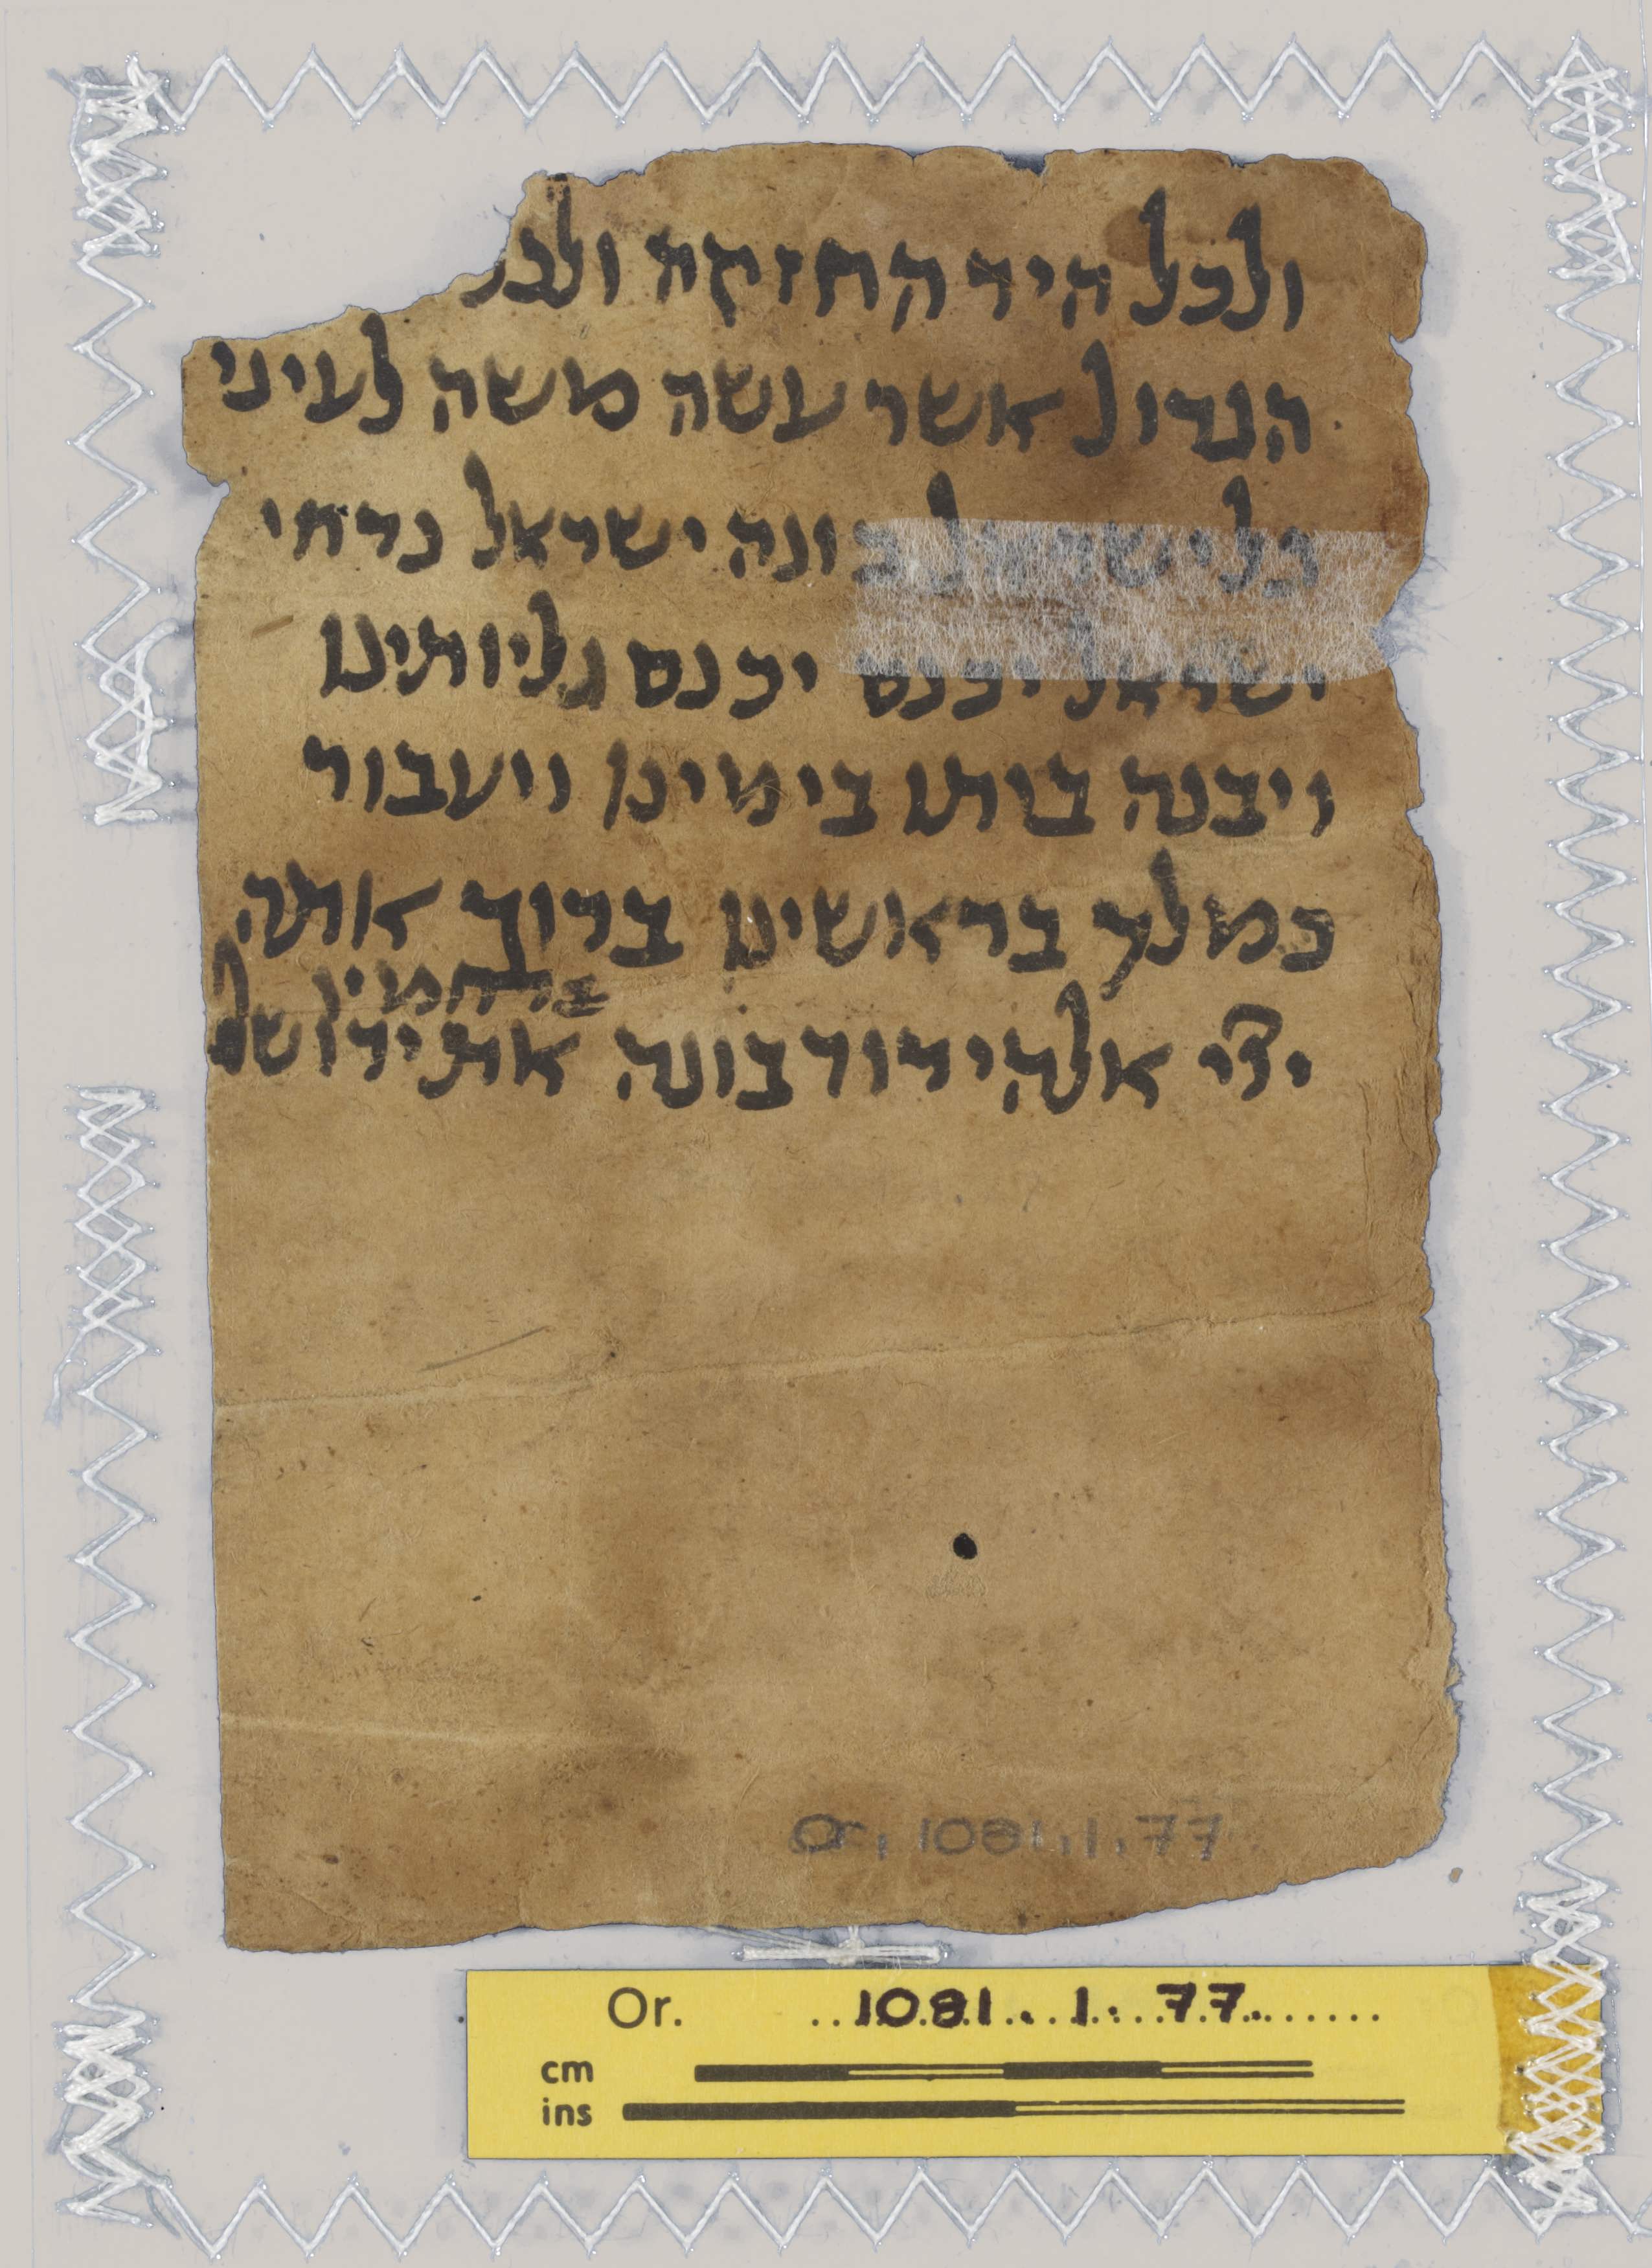 ולכל היד החזקה ולכל
הגדול אשר עשה משה לעיני
כל ישראל בונה ישראל נדחי
ישראל יכנס יכנס גליותינו
ויבנה ביתו בימינו ויעבור
כמלך בראשינו ברוך אתה
ברחמיו
ייי אלהי דוד בונה את ירושל
Or. 1081.1.77
Or. 1081. 1. 77
cm
ins